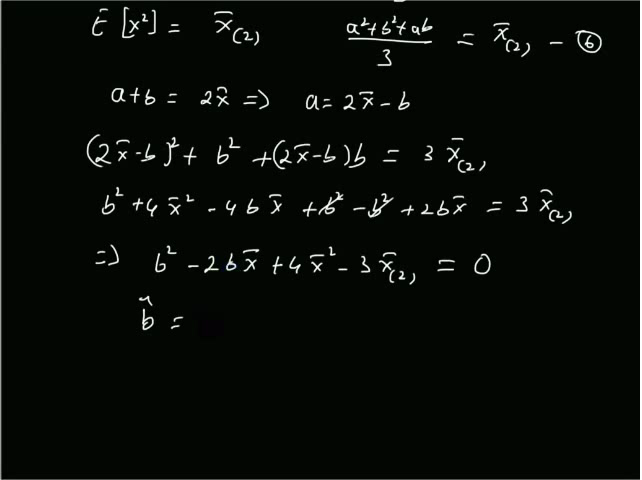 E [x²] = x̄₍₂₎   (a²+b²+ab)/3 = x̄₍₂₎ - ⑥
a+b = 2x̄ => a = 2x̄ - b
(2x̄-b)² + b² + (2x̄-b)b = 3 x̄₍₂₎
b² + 4x̄² - 4bx̄ + b² - b² + 2bx̄ = 3 x̄₍₂₎
=> b² - 2bx̄ + 4x̄² - 3x̄₍₂₎ = 0
b̂ =